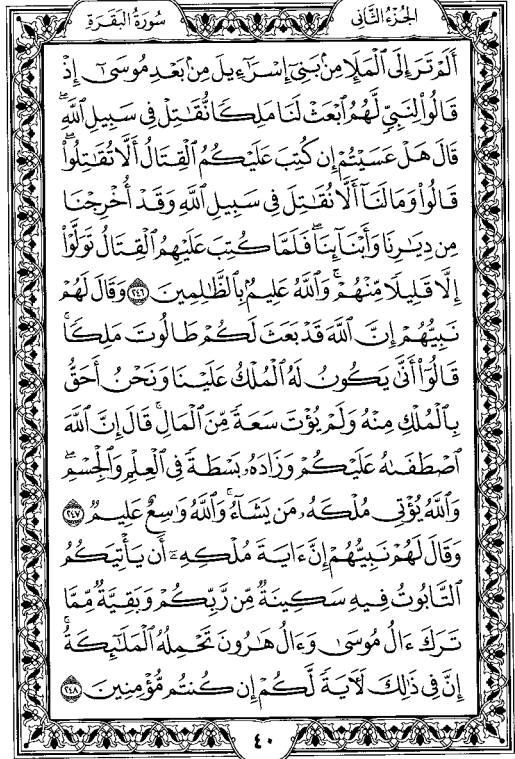 الجُزْءُ الثَّانِي سُورَةُ البَقَرَةِ
أَلَمْ تَرَ إِلَى ٱلْمَلَإِ مِنۢ بَنِىٓ إِسْرَٰٓءِيلَ مِنۢ بَعْدِ مُوسَىٰٓ إِذْ
قَالُوا۟ لِنَبِىٍّ لَّهُمُ ٱبْعَثْ لَنَا مَلِكًا نُّقَٰتِلْ فِى سَبِيلِ ٱللَّهِۖ
قَالَ هَلْ عَسَيْتُمْ إِن كُتِبَ عَلَيْكُمُ ٱلْقِتَالُ أَلَّا تُقَٰتِلُوا۟ۖ
قَالُوا۟ وَمَا لَنَآ أَلَّا نُقَٰتِلَ فِى سَبِيلِ ٱللَّهِ وَقَدْ أُخْرِجْنَا
مِن دِيَٰرِنَا وَأَبْنَآئِنَاۖ فَلَمَّا كُتِبَ عَلَيْهِمُ ٱلْقِتَالُ تَوَلَّوْا۟
إِلَّا قَلِيلًا مِّنْهُمْۚ وَٱللَّهُ عَلِيمٌۢ بِٱلظَّٰلِمِينَ ٢٤٦ وَقَالَ لَهُمْ
نَبِيُّهُمْ إِنَّ ٱللَّهَ قَدْ بَعَثَ لَكُمْ طَالُوتَ مَلِكًاۚ
قَالُوٓا۟ أَنَّىٰ يَكُونُ لَهُ ٱلْمُلْكُ عَلَيْنَا وَنَحْنُ أَحَقُّ
بِٱلْمُلْكِ مِنْهُ وَلَمْ يُؤْتَ سَعَةً مِّنَ ٱلْمَالِۚ قَالَ إِنَّ ٱللَّهَ
ٱصْطَفَىٰهُ عَلَيْكُمْ وَزَادَهُۥ بَسْطَةً فِى ٱلْعِلْمِ وَٱلْجِسْمِۖ
وَٱللَّهُ يُؤْتِى مُلْكَهُۥ مَن يَشَآءُۚ وَٱللَّهُ وَٰسِعٌ عَلِيمٌ ٢٤٧
وَقَالَ لَهُمْ نَبِيُّهُمْ إِنَّ ءَايَةَ مُلْكِهِۦٓ أَن يَأْتِيَكُمُ
ٱلتَّابُوتُ فِيهِ سَكِينَةٌ مِّن رَّبِّكُمْ وَبَقِيَّةٌ مِّمَّا
تَرَكَ ءَالُ مُوسَىٰ وَءَالُ هَٰرُونَ تَحْمِلُهُ ٱلْمَلَٰٓئِكَةُۚ
إِنَّ فِى ذَٰلِكَ لَءَايَةً لَّكُمْ إِن كُنتُم مُّؤْمِنِينَ ٢٤٨
٤٠